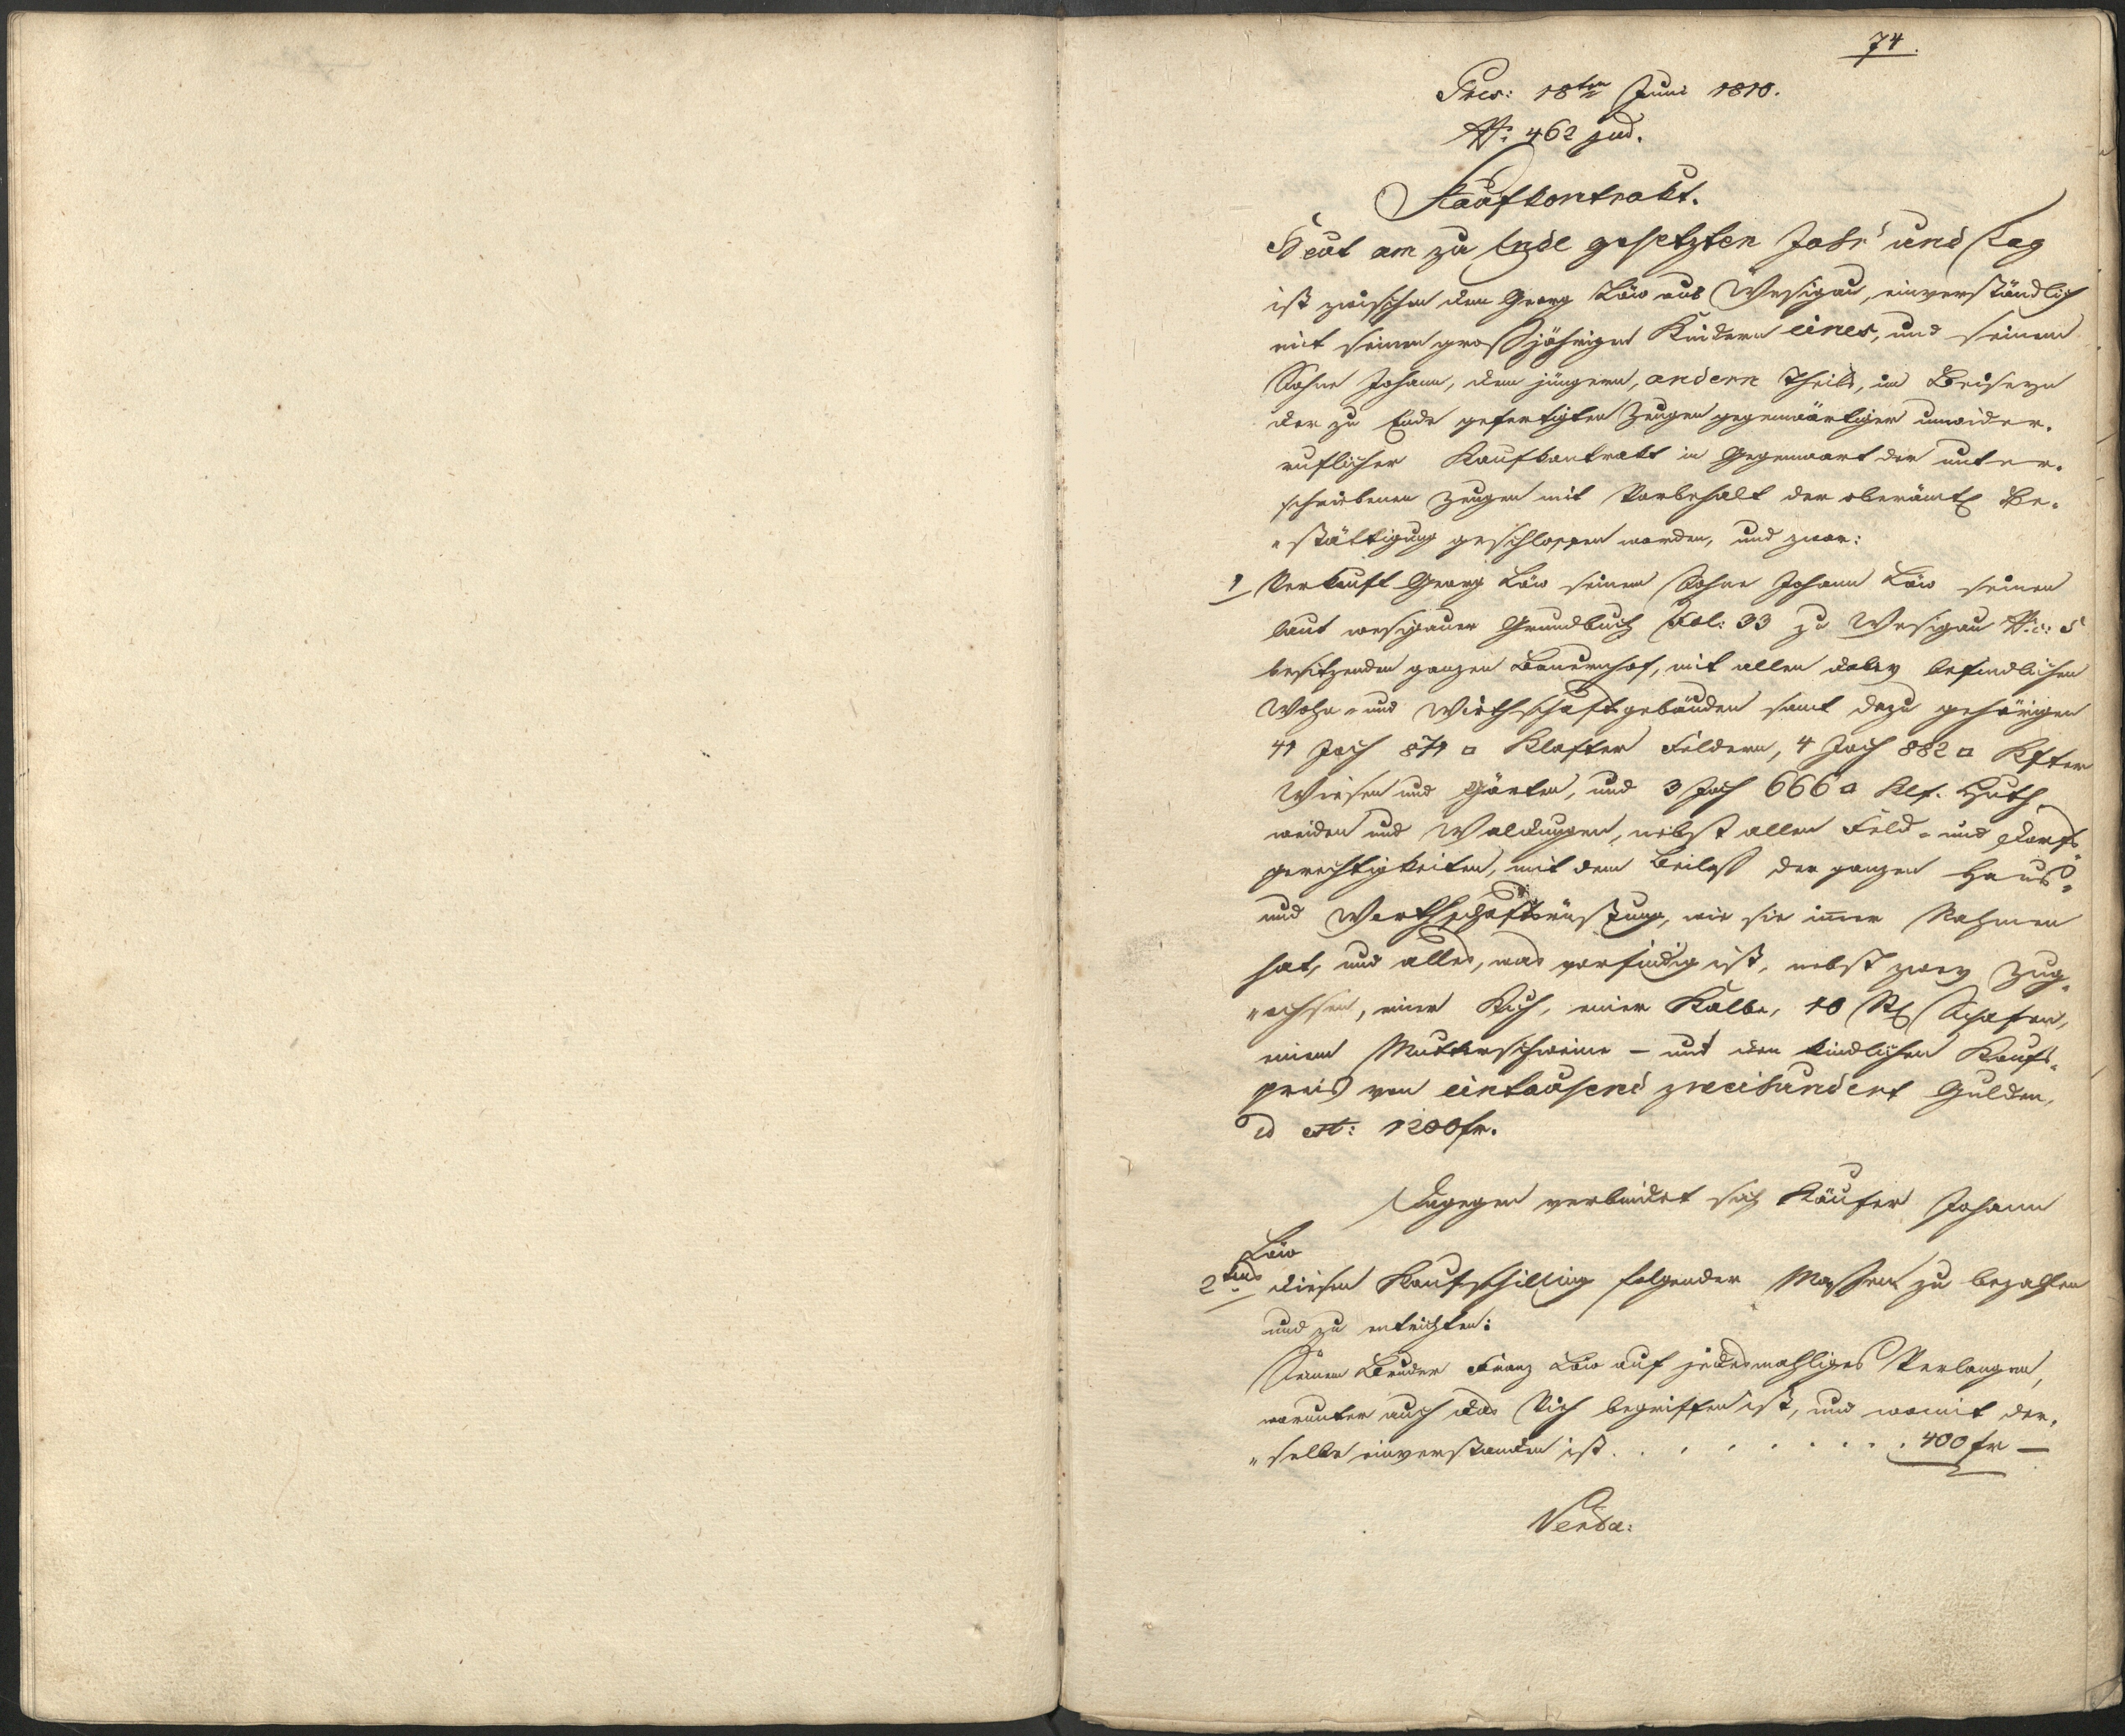 74.
Pres: 18ten Juni 1810.
N: 462 jud.
Kaufkontrakt.
Heut am zu Ende gesetzten Jahr und Tag
ist zwischen dem Georg Löw aus Wesigau, einverständlich
mit seinen großjährigen Kindern eines, und seinem
Sohne Johann, dem jüngern, andern Theils, im Beiseyn
der zu Ende gefertigten Zeugen gegenwärtiger unwider-
ruflicher Kaufkontrakt in Gegenwart der unter-
schriebenen Zeugen mit Vorbehalt der oberämtl Be-
stättigung geschlossen worden, und zwar:
1 Verkauft Georg Löw seinem Sohne Johann Löw seinen
laut wesigauer Grundbuch Fol: 33 zu Wesigau N: c: 5
besitzenden ganzen Bauernhof, mit allen dabey befindlichen
Wohn- und Wirthschaftgebäuden samt dazu gehörigen
41 Joch 871 □ Klafter Feldern, 4 Joch 882 □ Klfter
Wiesen und Gärten, und 3 Joch 666 □ Klf. Huth-
weiden und Waldungen, nebst allen Feld- und Dorfs-
gerechtigkeiten, mit dem Beilaß der ganzen Haus-
und Werthschaftsrüstung, wie sie immer Nahmen
hat, und alles, was vorfindig ist, nebst zwey Zug-
ochsen, einer Kuh, einer Kalbe, 10 Stk Schafen,
einem Mutterschweine – um den kindlichen Kaufs-
preis von eintausend zweihundert Gulden,
id est: 1200 fr.
Dagegen verbindet sich Käufer Johann
Löw
2tens diesen Kaufschilling folgender Massen zu bezahlen
und zu entrichten:
Seinem Bruder Franz Löw auf jedesmahliges Verlangen,
worunter auch das Vieh begriffen ist, und womit der-
selbe einverstanden ist . . . . . . . . 400 fr –